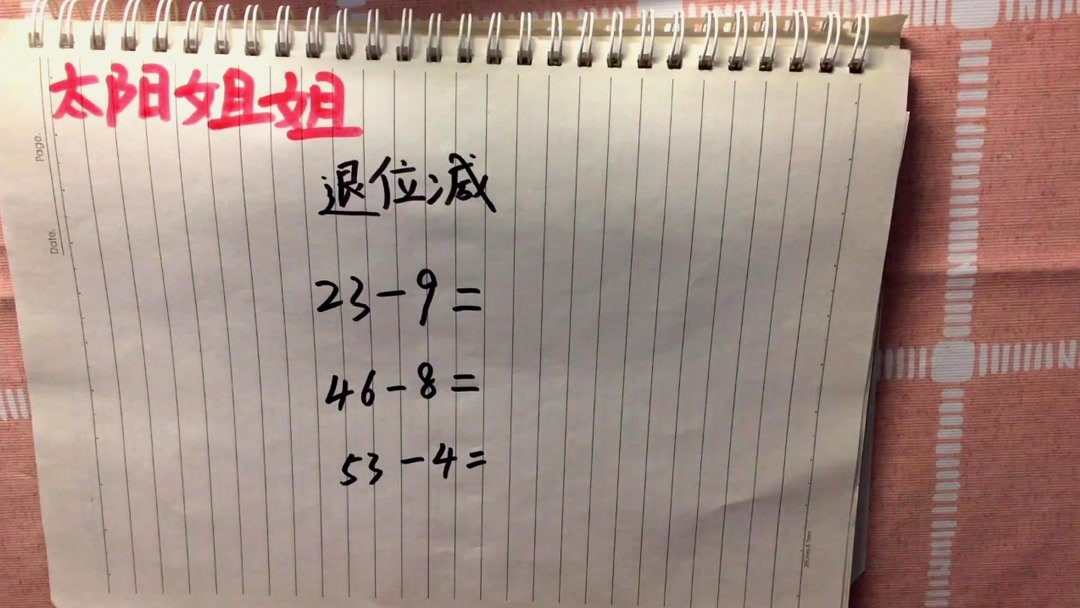 太阳姐姐
退位减
23-9=
46-8=
53-4=
Page.
Date.